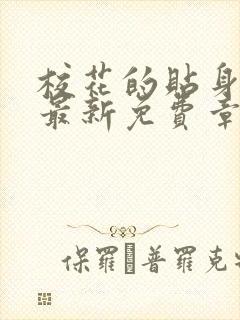 校花的贴身
最新免费章
保羅·普羅克